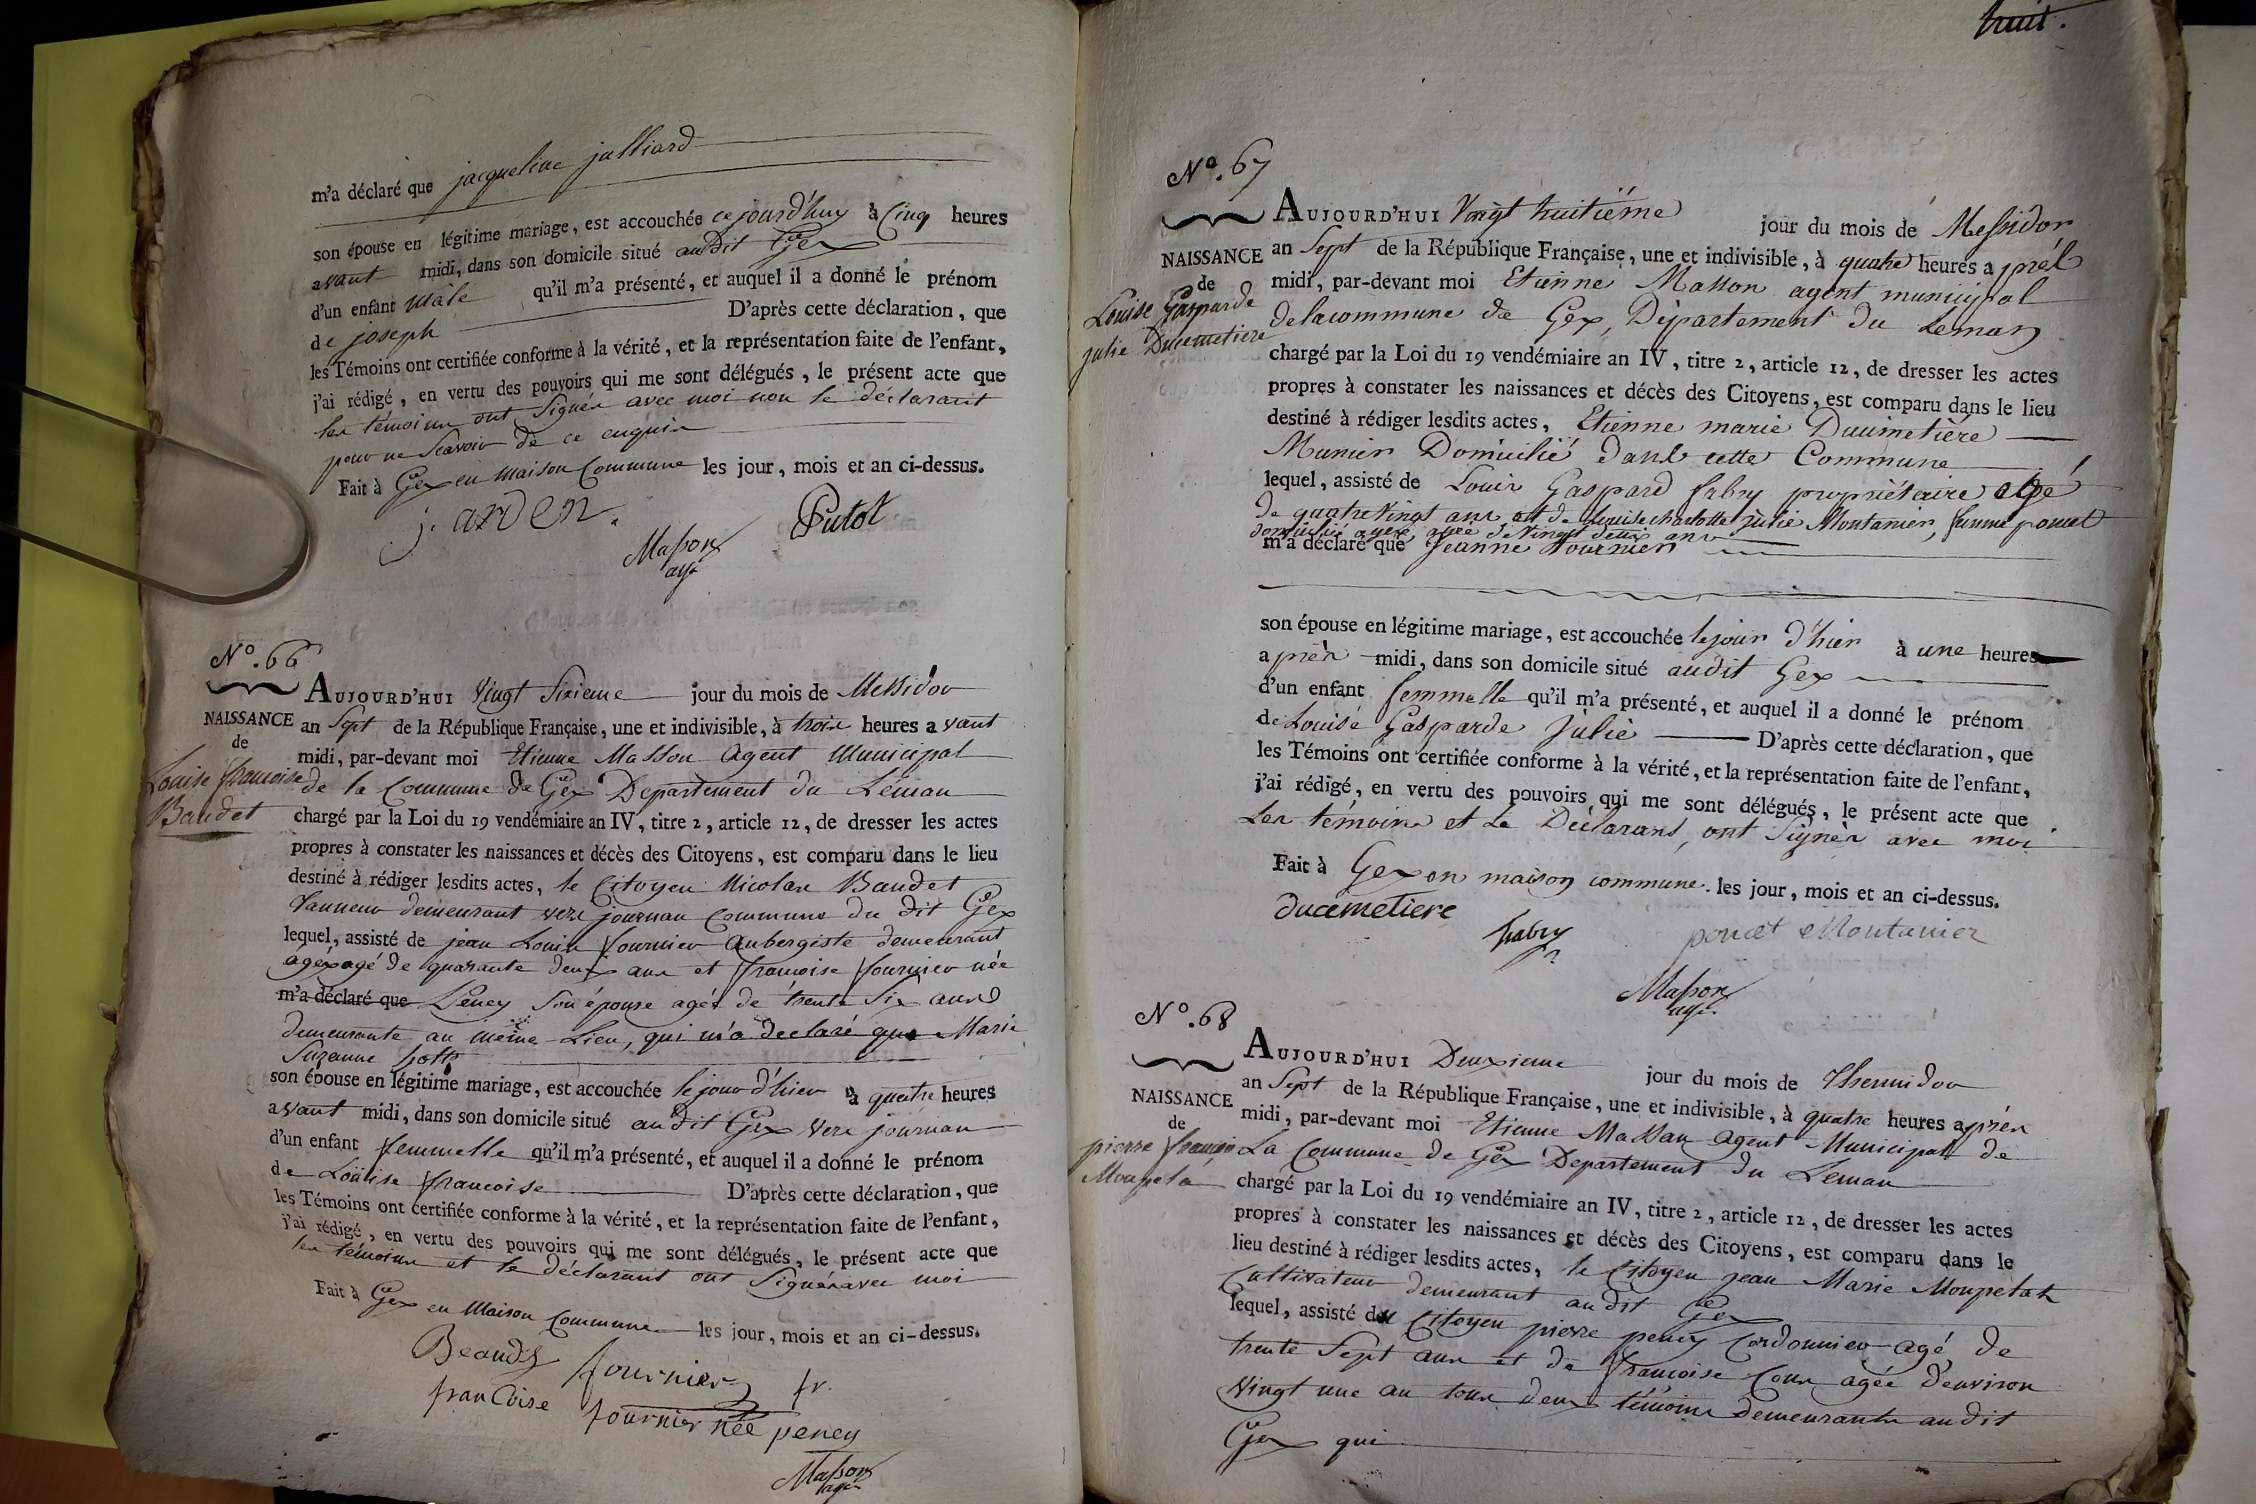 m'a déclaré que jacqueline julliard
son épouse en légitime mariage, est accouchée ce jourd'huy à Cinq heures
avant midi, dans son domicile situé audit Gex
d'un enfant mâle qu'il m'a présenté, et auquel il a donné le prénom
de joseph D'après cette déclaration, que
les Témoins ont certifiée conforme à la vérité, et la représentation faite de l'enfant,
j'ai rédigé, en vertu des pouvoirs qui me sont délégués, le présent acte que
les témoins ont signés avec moi non le déclarant
pour ne scavoir de ce enquis
Fait à Gex en maison Commune les jour, mois et an ci-dessus.
j. arden.
Masson
agt
Putot
N.° 66
NAISSANCE
de
Louise francoise
Baudet
AUJOURD'HUI Vingt Sixieme jour du mois de Messidor
an Sept de la République Française, une et indivisible, à trois heures avant
midi, par-devant moi Etienne Masson Agent Municipal
de la Commune de Gex Departement du Leman
chargé par la Loi du 19 vendémiaire an IV, titre 2, article 12, de dresser les actes
propres à constater les naissances et décès des Citoyens, est comparu dans le lieu
destiné à rédiger lesdits actes, le Citoyen Nicolas Baudet
Tanneur demeurant vers journan Commune du dit Gex
lequel, assisté de jean Louis fournier Aubergiste demeurant
à gex agé de quarante deux ans et francoise fournier née
m'a déclaré que Peney Son épouse agée de trente Six ans
demeurante au même Lieu, qui m'a déclaré que Marie
Suzanne
son épouse en légitime mariage, est accouchée le jour d'hier à quatre heures
avant midi, dans son domicile situé audit Gex Vers journan
d'un enfant femmelle qu'il m'a présenté, et auquel il a donné le prénom
de Loüise francoise D'après cette déclaration, que
les Témoins ont certifiée conforme à la vérité, et la représentation faite de l'enfant,
j'ai rédigé, en vertu des pouvoirs qui me sont délégués, le présent acte que
les témoins et le déclarant ont Signés avec moi
Fait à Gex en Maison Commune les jour, mois et an ci-dessus.
fournier fr.
franCoise fournier née peney
Masson
agt
huit.
N.° 67
NAISSANCE
de
Louise Gasparde
julie Ducemetiere
AUJOURD'HUI Vingt huitiéme jour du mois de Messidor
an Sept de la République Française, une et indivisible, à quatre heures après
midi, par-devant moi Etienne Masson agent municipal
de la commune de Gex, Département du Leman
chargé par la Loi du 19 vendémiaire an IV, titre 2, article 12, de dresser les actes
propres à constater les naissances et décès des Citoyens, est comparu dans le lieu
destiné à rédiger lesdits actes, Etienne marie Ducimetière
Munier Domicilié dans cette Commune
lequel, assisté de Louis Gaspard fabry propriétaire agé
de quatre Vingt ans, et de Louise charlotte julie Montanier, femme poncet
domiciliée à gex, agée de Vingt deux ans
m'a déclaré que Jeanne Tournier
son épouse en légitime mariage, est accouchée le jour d'hier à une heures
après midi, dans son domicile situé audit Gex
d'un enfant femmelle qu'il m'a présenté, et auquel il a donné le prénom
de Louise Gasparde Julie D'après cette déclaration, que
les Témoins ont certifiée conforme à la vérité, et la représentation faite de l'enfant,
j'ai rédigé, en vertu des pouvoirs qui me sont délégués, le présent acte que
Les témoins et Le Déclarant, ont Signés avec moi
Fait à Gex en maison commune. les jour, mois et an ci-dessus.
ducemetiere
fabry
poncet Montanier
Masson
agt.
N.° 68
NAISSANCE
de
pierre francois
Monpela
AUJOURD'HUI Deuxieme jour du mois de Thermidor
an Sept de la République Française, une et indivisible, à quatre heures après
midi, par-devant moi Etienne Masson Agent Municipal de
La Commune de Gex Departement du Leman
chargé par la Loi du 19 vendémiaire an IV, titre 2, article 12, de dresser les actes
propres à constater les naissances et décès des Citoyens, est comparu dans le
lieu destiné à rédiger lesdits actes, le Citoyen jean Marie Monpelah
Cultivateur demeurant audit Gex
lequel, assisté du Citoyen pierre peney Cordonnier agé de
trente Sept ans et de francoise agée d'environ
Vingt une an tous deux témoins demeurants audit
Gex qui